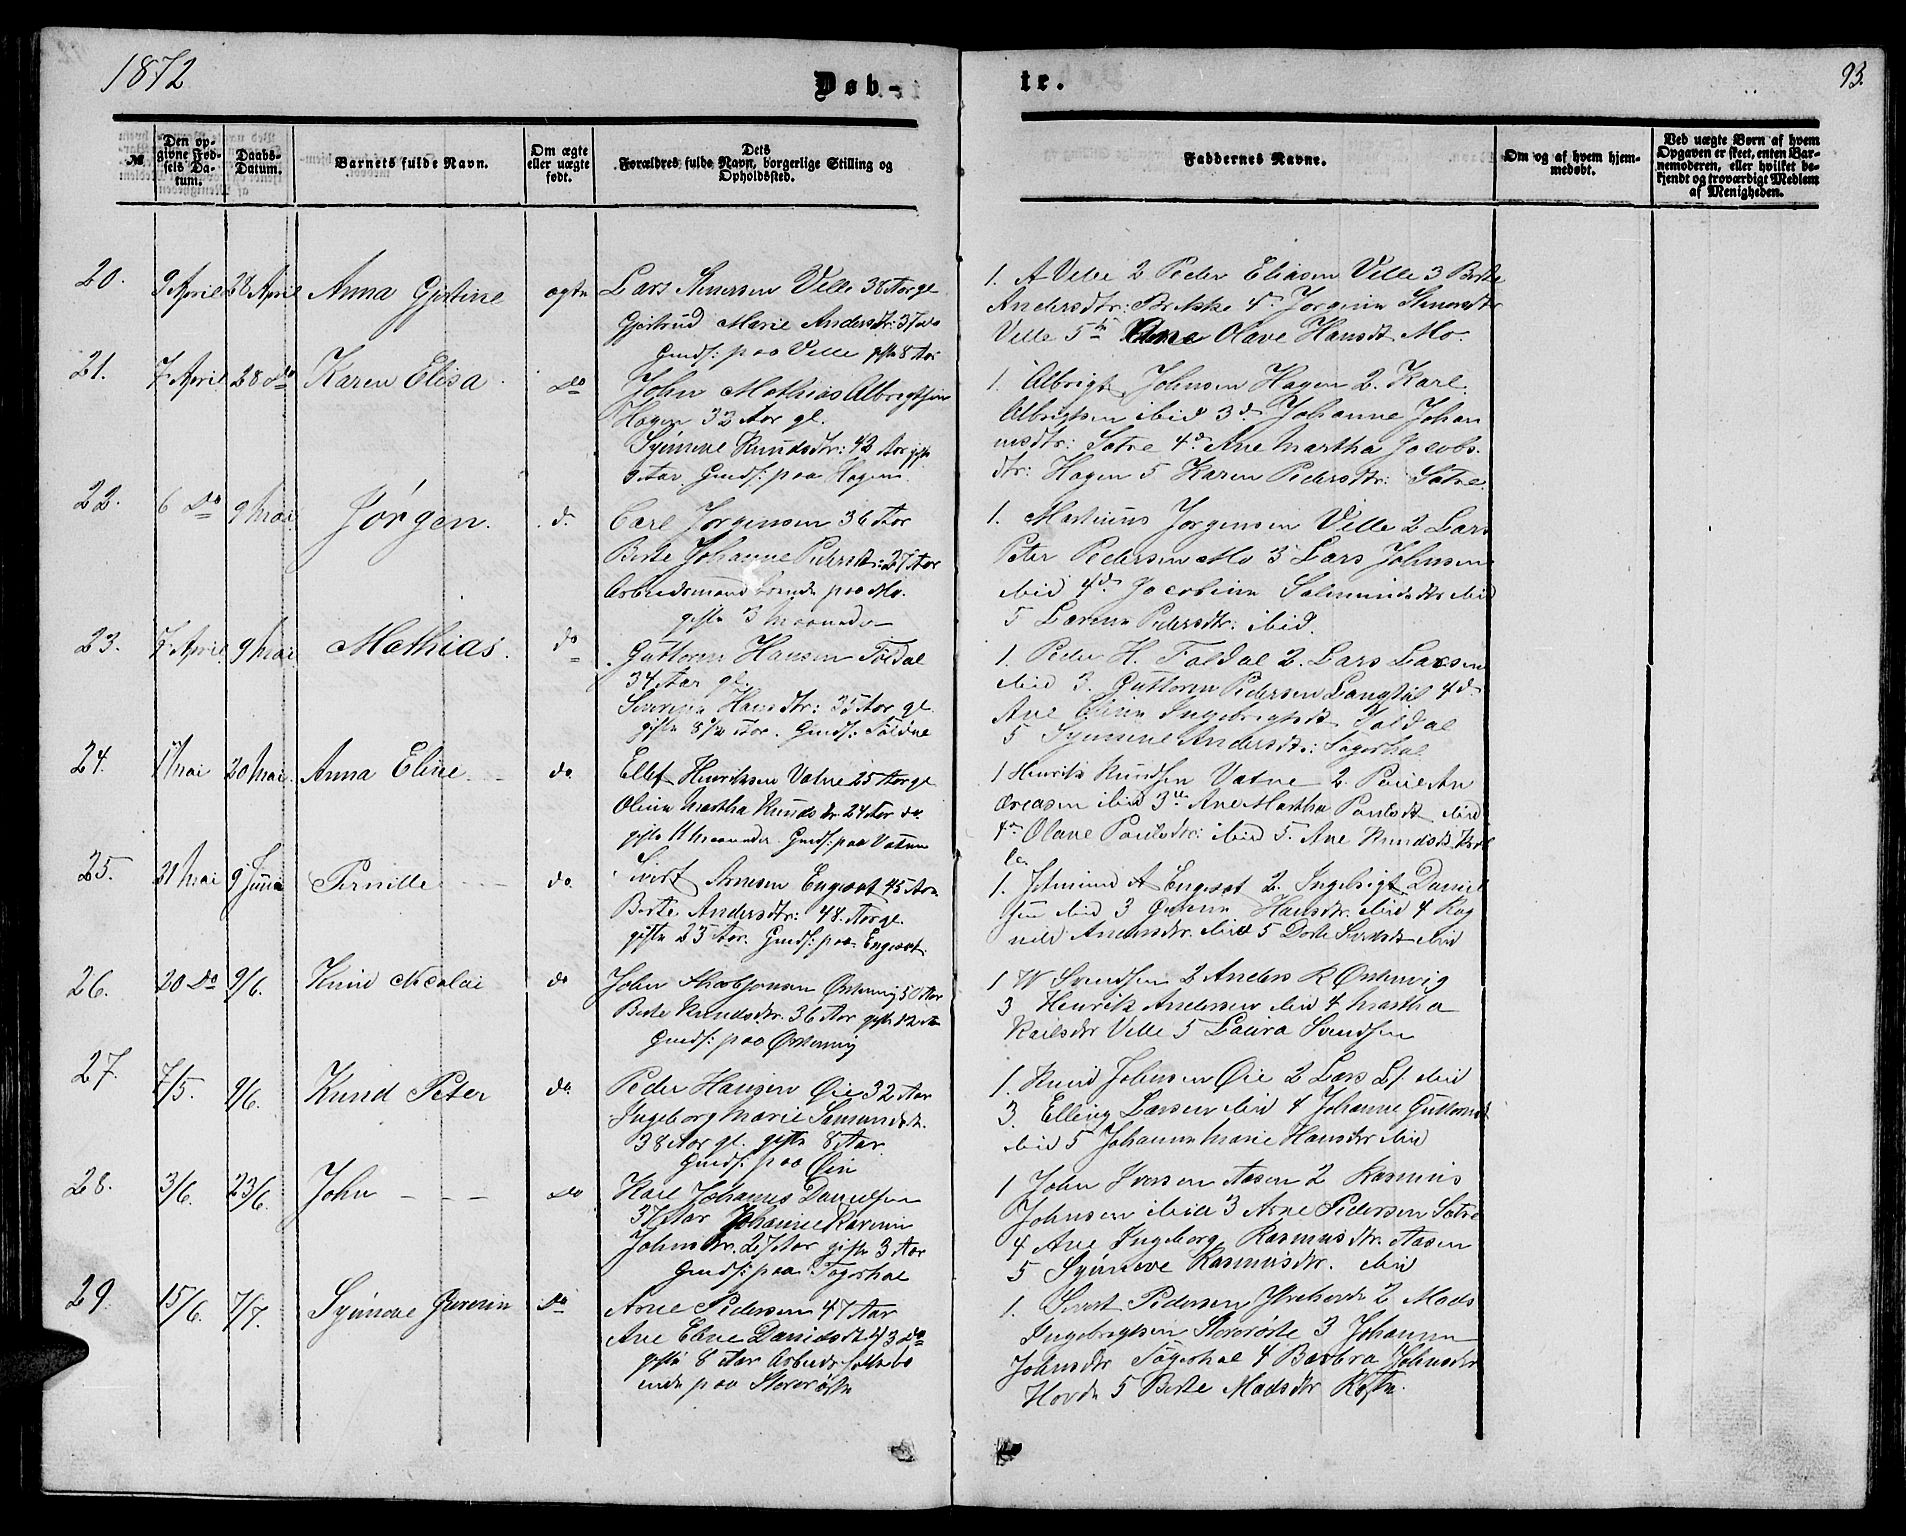 1872
Døb-
te.
93.
№
Den op-
givne Fød-
sels Da-
tum.
Daabs-
Datum.
Barnets fulde Navn.
Om ægte
eller uægte
født.
Dets
Forældres fulde Navn, borgerlige Stilling og
Opholdssted.
Faddernes Navne.
Om og af hvem hjem-
medøbt.
Ved uægte Børn af hvem
Opgaven er skeet, enten Bar-
nemoderen, eller hvilket be-
kjendt og troværdigt Medlem
af Menigheden.
20. 9 April 28 April Anna Gjertine ægte
Lars Velle 38 Aar gl
Gjertrud Marie Andersdtr: 37 do
Gmds: paa Velle gifte 8 Aar
1. A Velle 2 Peder Eliasen Velle 3 Berte
Andersdtr: Brekke 4 Jorgine
Velle 5 Ane Olave Hansdt Mo.
21. 7 April 28 do Karen Elisa do
John Mathias Albrigtsen
Hagen 32 Aar gl.
Synneve Knudsdtr: 42 Aar gifte
Aar Gmds: paa Hagen.
1. Albrigt Johnsen Hagen 2. Karl
Albrigtsen ibid 3 Johanne Johan
nesdtr: Sætre 4 Ane Martha Jacobs.
dtr: Hagen 5 Karen Pedersdtr: Sætre.
22. 6 do 9 Mai Jørgen. d.
Carl Jørgensen 36 Aar
Berte Johanne Pedersdt: 27 Aar
Arbeidsmand boende paa Mo.
gifte 3 maaneder
1. Martinus Jørgensen Velle 2 Lars
Peter Pedersen Mo 3 Lars Johnsen
ibid 4 Jacobine ibid
5 Lavene Pedersdtr: ibid.
23. 7 April 9 Mai Mathias. do
Guttorm Hansen Foldal
34 Aar gl.
Severine Hansdtr: 25 Aar gl
gifte 8 Aar. Gmds: Foldal
1. Peder H. Foldal 2. Lars Larsen
ibid 3. Guttorm Pedersen 4
Ane Ingebrigtsdt Foldal
5 Synneve Andersdt: Fagerhol
24. 1 Mai 20 Mai. Anna Eline do.
Ellef Henriksen Vatne 25 Aar gl
Oline Martha Knudsdr 24 Aar do.
gifte 11 maaneder Gmds: paa Vatne
1 Henrik Knudsen Vatne 2. An
dreasen ibid 3 Ane Martha Paulsdt ibid
4 Olave Paulsdtr: ibid 5. Ane Knudsdt
25. 21 Mai 9 Juni Pernille do.
Sivert Arnesen Engeset 45 Aar
Berte Andersdtr: 48. Aar gl.
gifte 23 Aar. Gmds: paa Engeset.
1. A Engeset 2. Ingebrigt Daniel
sen ibid 3 Hansdtr. ibid 4 Rag
ibid 5 Dorte ibid
26. 20 do 9/6. Knud Nicolai do
John Ørstenvig 50 Aar
Berte Knudsdtr. 36 Aar gifte 12 Aar
Gmds: paa Ørstenvig
1 W Svendsen 2 Anders K Ørstenvig
3 Henrik Andersen ibid 4 Martha
Karlsdtr Velle 5 Laura Svendsen
27. 7/5. 9/6. Knud Peter do.
Peder Hansen Øie 32 Aar
Ingeborg Marie
38 Aar gl. gifte 8 Aar.
Gmds: paa Øie
1. Knud Johnsen Øie 2 Lars ibid
3. Elling Larsen ibid 4 Johanne Guttormsd
ibid 5 Johanne Marie Hansdtr ibid
28. 3/6. 23/6. John do
Karl Johannes Danielsen
37 Aar Johanne Karine
Johnsdtr. 27 Aar gifte 3 Aar
Gmds: paa Fagerhol
1 John Iversen Aasen 2 Rasmus
Johnsen ibid 3 Arne Pedersen Sætre
4 Ane Ingeborg Rasmusdtr. Aasen
5 Synneve Rasmusdtr. ibid
29. 15/6. 7/7. Synneve do
Arne Pedersen 47 Aar
Ane Danielsdt 43 do
gifte 8 Aar Arbeidsfolk bo
ende paa
1. Sivert Pedersen 2 Mads
Ingebrigtsen 3 Johanne
Johnsdtr Fagerhol 4 Barbra Johnsdtr
Hovde 5 Berte Madsdtr